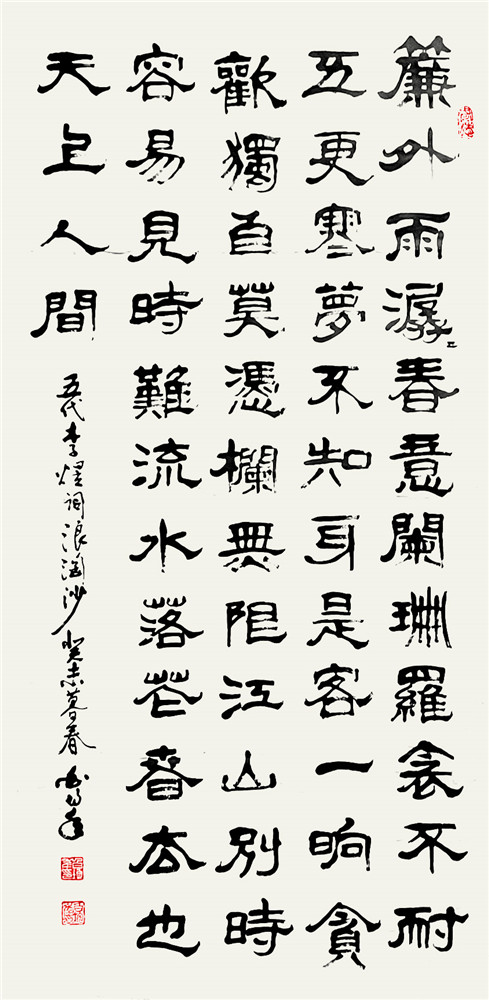 簾外雨潺〻春意闌珊羅衾不耐
五更寒夢不知身是客一晌貪
歡獨自莫憑欄無限江山別時
容易見時難流水落花春去也
天上人間
五代李煜词浪淘沙癸未暮春